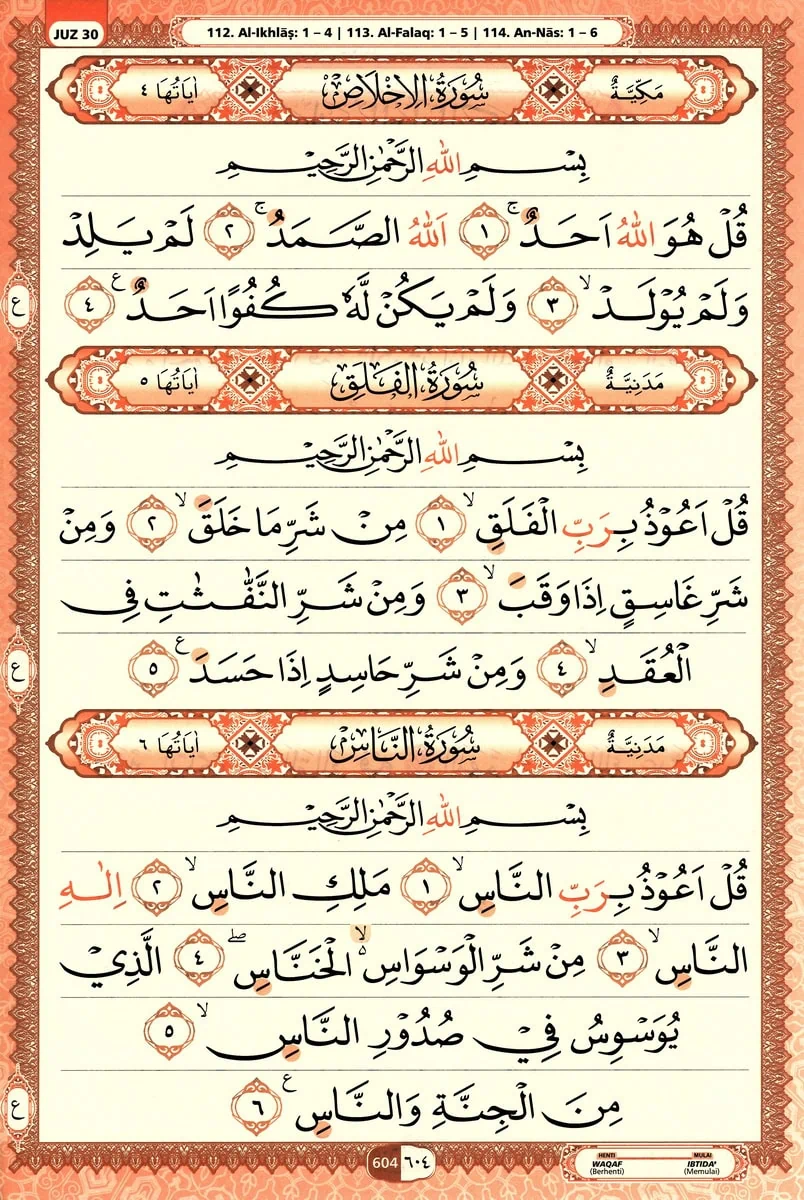 JUZ 30
112. Al-Ikhlāṣ: 1 – 4 | 113. Al-Falaq: 1 – 5 | 114. An-Nās: 1 – 6
مَكِّيَّةٌ سُوْرَةُ الْاِخْلَاصِ اٰيَاتُهَا ٤
بِسْمِ اللّٰهِ الرَّحْمٰنِ الرَّحِيْمِ
قُلْ هُوَ اللّٰهُ اَحَدٌۚ ١ اَللّٰهُ الصَّمَدُۚ ٢ لَمْ يَلِدْ
وَلَمْ يُوْلَدْۙ ٣ وَلَمْ يَكُنْ لَّهٗ كُفُوًا اَحَدٌ ࣖ ٤
ع
مَدَنِيَّةٌ سُوْرَةُ الْفَلَقِ اٰيَاتُهَا ٥
بِسْمِ اللّٰهِ الرَّحْمٰنِ الرَّحِيْمِ
قُلْ اَعُوْذُ بِرَبِّ الْفَلَقِۙ ١ مِنْ شَرِّ مَا خَلَقَۙ ٢ وَمِنْ
شَرِّ غَاسِقٍ اِذَا وَقَبَۙ ٣ وَمِنْ شَرِّ النَّفّٰثٰتِ فِى
الْعُقَدِۙ ٤ وَمِنْ شَرِّ حَاسِدٍ اِذَا حَسَدَ ࣖ ٥
ع
مَدَنِيَّةٌ سُوْرَةُ النَّاسِ اٰيَاتُهَا ٦
بِسْمِ اللّٰهِ الرَّحْمٰنِ الرَّحِيْمِ
قُلْ اَعُوْذُ بِرَبِّ النَّاسِۙ ١ مَلِكِ النَّاسِۙ ٢ اِلٰهِ
النَّاسِۙ ٣ مِنْ شَرِّ الْوَسْوَاسِ ەۙ الْخَنَّاسِۖ ٤ الَّذِيْ
يُوَسْوِسُ فِيْ صُدُوْرِ النَّاسِۙ ٥
مِنَ الْجِنَّةِ وَالنَّاسِ ࣖ ٦
ع
604 ٦٠٤
HENTI MULAI
WAQAF IBTIDA'
(Berhenti) (Memulai)